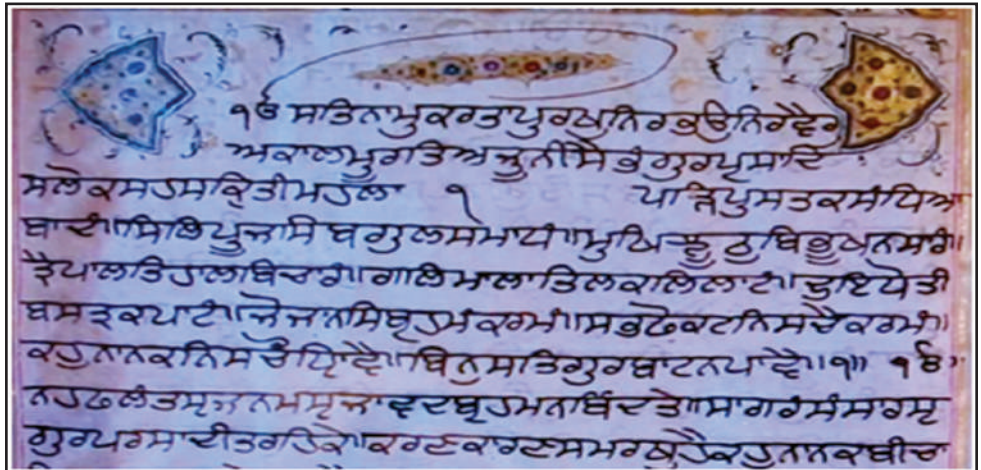 ੧ੳ ਸਤਿਨਾਮੁਕਰਤਾਪੁਰਖੁਨਿਰਭਉਨਿਰਵੈਰ
ਅਕਾਲਮੂਰਤਿਅਜੂਨੀਸੈਭੰਗੁਰਪ੍ਰਸਾਦਿ
ਸਲੋਕਸਹਸਕ੍ਰਿਤੀਮਹਲਾ ੧ ਪੜ੍ਹਿਪੁਸਤਕਸੰਧਿਆ
ਬਾਦੰ॥ਸਿਲਿਪੂਜਸਿਬਗੁਲਸਮਾਧੰ॥ਮੁਖਿਝੂਠੁਬਿਭੂਖਨਸਾਰੰ॥
ਤ੍ਰੈਪਾਲਤਿਹਾਲਬਿਚਾਰੰ॥ਗਲਿਮਾਲਾਤਿਲਕਲਿਲਾਟੰ॥ਦੁਇਧੋਤੀ
ਬਸਤ੍ਰਕਪਾਟੰ॥ਜੋਜਾਨਸਿਬ੍ਰਹਮੰਕਰਮੰ॥ਸਭਫੋਕਟਨਿਸਚੈਕਰਮੰ॥
ਕਹੁਨਾਨਕਨਿਸਚੌਧ੍ਹਿਾਵੈ॥ਬਿਨੁਸਤਿਗੁਰਬਾਟਨਪਾਵੈ॥੧॥ ੧ੳ
ਗੁਰਪਰਸਾਦੀਤਰਹਿਕੇ॥ਕਰਣਕਾਰਣਸਮਰਥੁਹੈਕਹੁਨਾਨਕਬੀਚਾ